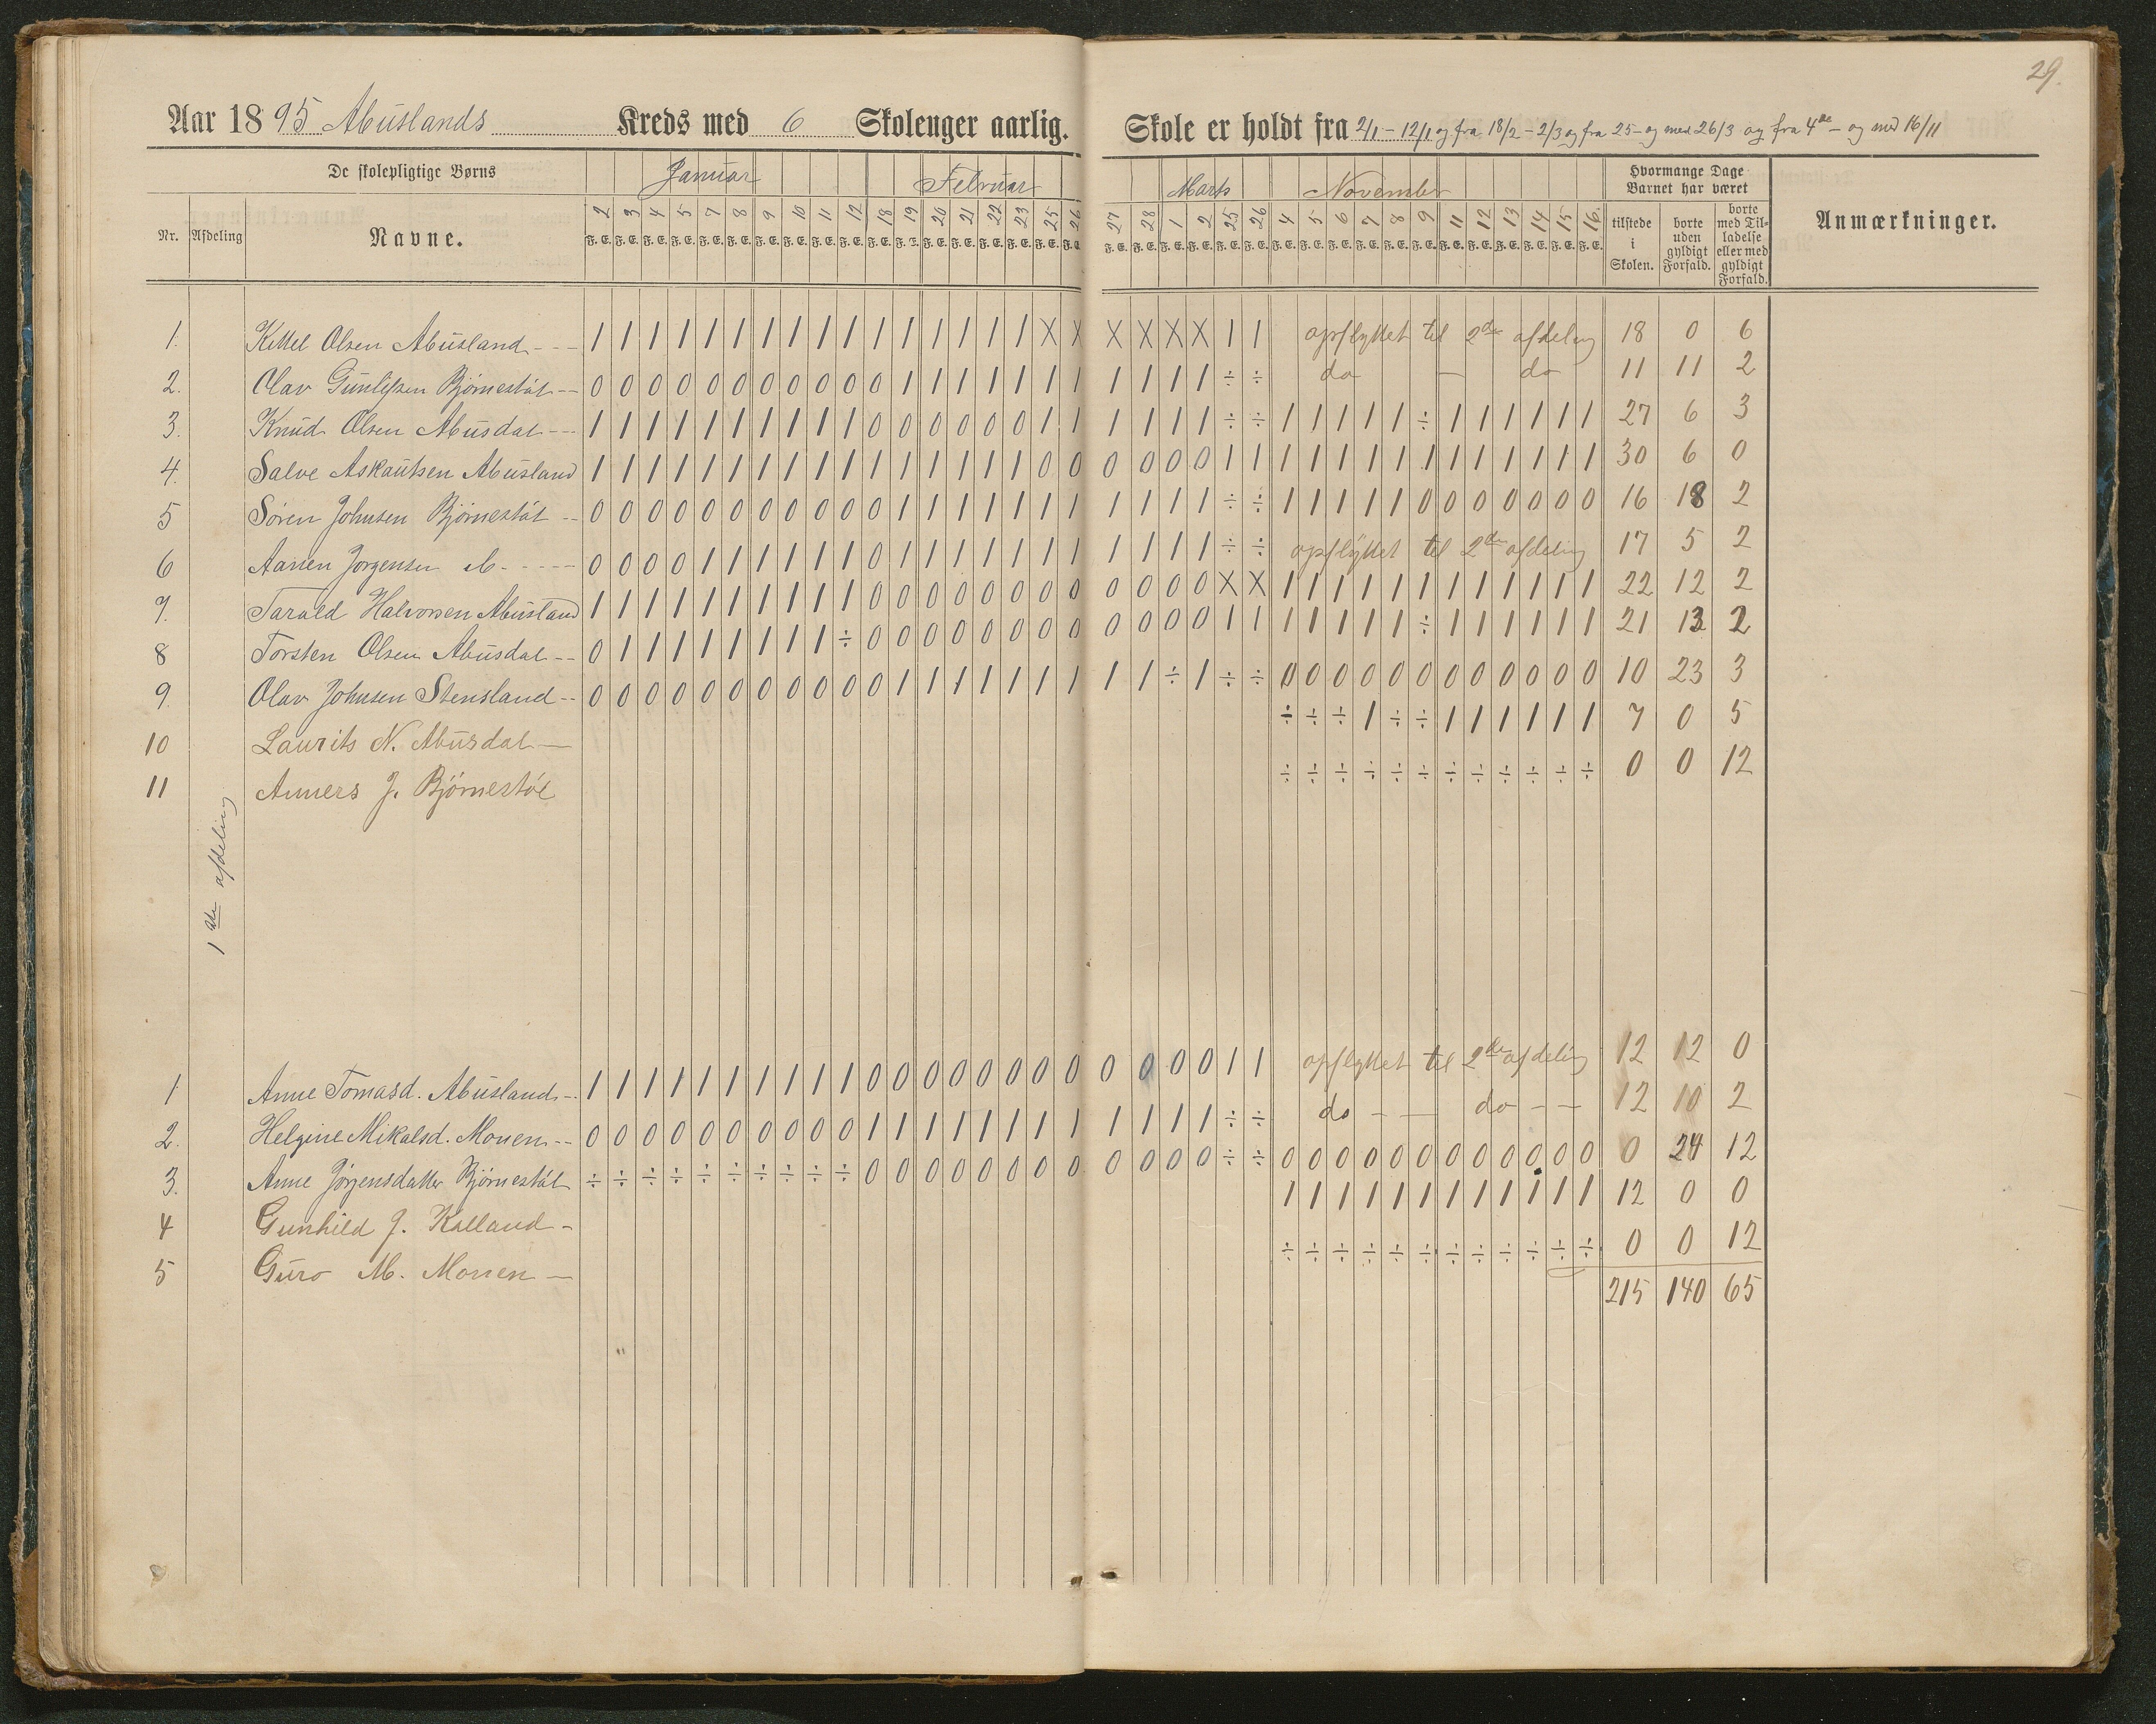 29.
Aar 1895 Abuslands Kreds med 6 Skoleuger aarlig. Skole er holdt fra 2/1 – 12/1 og fra 18/2 – 2/3 og fra 25 – og med 26/3 og fra 4de – og med 16/11
De skolepligtige Børns Januar Februar Marts November Hvormange Dage Barnet har været
Nr. Afdeling Navne. 2 3 4 5 7 8 9 10 11 12 18 19 20 21 22 23 25 26 27 28 1 2 25 26 4 5 6 7 8 9 11 12 13 14 15 16 tilstede i Skolen. borte uden gyldigt Forfald. borte med Tilladelse eller med gyldigt Forfald. Anmærkninger.
F. E. F. E. F. E. F. E. F. E. F. E. F. E. F. E. F. E. F. E. F. E. F. E. F. E. F. E. F. E. F. E. F. E. F. E. F. E. F. E. F. E. F. E. F. E. F. E. F. E. F. E. F. E. F. E. F. E. F. E. F. E. F. E. F. E. F. E. F. E. F. E.
1. Kittel Olsen Abusland - - - 1 1 1 1 1 1 1 1 1 1 1 1 1 1 1 1 X X X X X X 1 1 opflyttet til 2de afdeling 18 0 6
2. Olav Gunlefsen Bjørnestøl - - 0 0 0 0 0 0 0 0 0 0 0 1 1 1 1 1 1 1 1 1 1 1 ÷ ÷ do — do 11 11 2
3. Knud Olsen Abusdal - - - 1 1 1 1 1 1 1 1 1 1 0 0 0 0 0 0 1 1 1 1 1 1 ÷ ÷ 1 1 1 1 1 ÷ 1 1 1 1 1 1 27 6 3
4. Salve Askautsen Abusland 1 1 1 1 1 1 1 1 1 1 1 1 1 1 1 1 0 0 0 0 0 0 1 1 1 1 1 1 1 1 1 1 1 1 1 1 30 6 0
5 Søren Johnsen Bjørnestøl - - 0 0 0 0 0 0 0 0 0 0 0 1 1 1 1 1 1 1 1 1 1 1 ÷ ÷ 1 1 1 1 1 0 0 0 0 0 0 0 16 18 2
6 Aanen Jørgensen do - - - - - 0 0 0 0 1 1 1 1 1 1 0 1 1 1 1 1 1 1 1 1 1 1 ÷ ÷ opflyttet til 2de afdeling 17 5 2
7. Tarald Halvorsen Abusland 1 1 1 1 1 1 1 1 1 1 0 0 0 0 0 0 0 0 0 0 0 0 X X 1 1 1 1 1 1 1 1 1 1 1 1 22 12 2
8 Torsten Olsen Abusdal - - 0 1 1 1 1 1 1 1 1 ÷ 0 0 0 0 0 0 0 0 0 0 0 0 1 1 1 1 1 1 1 ÷ 1 1 1 1 1 1 21 13 2
9. Olav Johnsen Stensland - - 0 0 0 0 0 0 0 0 0 0 0 1 1 1 1 1 1 1 1 1 ÷ 1 ÷ ÷ 0 0 0 0 0 0 0 0 0 0 0 0 10 23 3
10 Laurits N. Abusdal — ÷ ÷ ÷ 1 ÷ ÷ 1 1 1 1 1 1 7 0 5
11 Anners J. Bjørnestøl ÷ ÷ ÷ ÷ ÷ ÷ ÷ ÷ ÷ ÷ ÷ ÷ 0 0 12
1ste afdeling
1 Anne Tomasd. Abusland - - 1 1 1 1 1 1 1 1 1 1 0 0 0 0 0 0 0 0 0 0 0 0 1 1 opflyttet til 2de afdeling 12 12 0
2. Helgine Mikalsd. Monen - - 0 0 0 0 0 0 0 0 0 0 1 1 1 1 1 1 1 1 1 1 1 1 ÷ ÷ do - — do - — 12 10 2
3. Anne Jørgensdatter Bjørnestøl ÷ ÷ ÷ ÷ ÷ ÷ ÷ ÷ ÷ ÷ 0 0 0 0 0 0 0 0 0 0 0 0 ÷ ÷ 0 0 0 0 0 0 0 0 0 0 0 0 0 24 12
4 Gunhild J. Kalland - 1 1 1 1 1 1 1 1 1 1 1 1 12 0 0
5 Guro M. Monen — ÷ ÷ ÷ ÷ ÷ ÷ ÷ ÷ ÷ ÷ ÷ ÷ 0 0 12
215 140 65